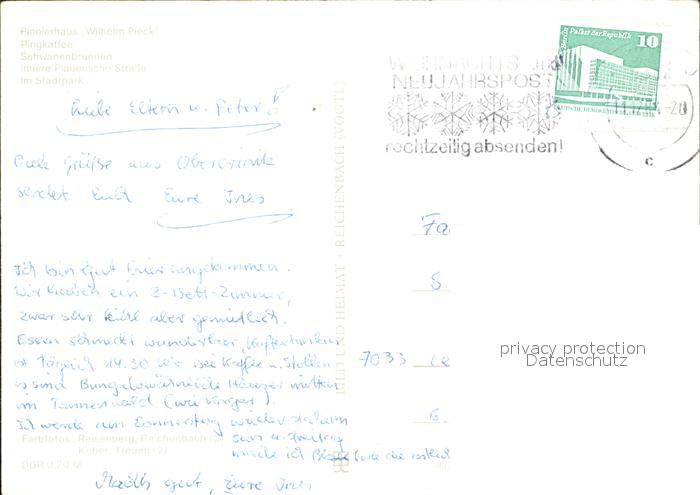 Pionierhaus „Wilhelm Pieck"
Ringkaffee
Schwanenbrunnen
Innere Plauensche Straße
Im Stadtpark
Liebe Eltern u. Peter!
Viele Grüße aus
sendet Euch Eure Ines
Ich bin gut hier angekommen.
Wir haben ein 2-Bett-Zimmer,
zwar sehr kühl aber gemütlich.
Essen schmeckt wunderbar, Kaffeetrinken
ist täglich 14.30 Uhr bei Kaffee u. Stollen.
Es sind Bungalowähnliche Häuser mitten
im Tannenwald (wie
Ich werde am Donnerstag wieder
sein u. Freitag
mache ich
Macht's gut, Eure Ines
Farbfotos: Reisenberg, Reichenbach (3)
Keber, Treuen (2)
DDR 0,20 M
BILD UND HEIMAT · REICHENBACH (VOGTL)
WEIHNACHTS und
NEUJAHRSPOST
rechtzeitig absenden!
Berlin Palast der Republik
10
DEUTSCHE DEMOKRATISCHE REPUBLIK
c
Fa
S.
7033 Le
privacy protection
Datenschutz